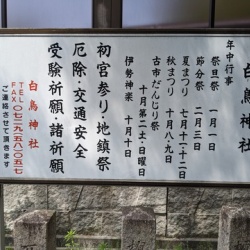 白鳥神社
年中行事
祭旦祭 一月一日
節分祭 二月三日
夏まつり 七月十一・十二日
秋まつり 十月八・九日
古市だんじり祭
十月第二土・日曜日
伊勢神楽 十月十日
初宮参り・地鎮祭
厄除・交通安全
受験祈願・諸祈願
白鳥神社
TEL
FAX
ご連絡させて頂きます